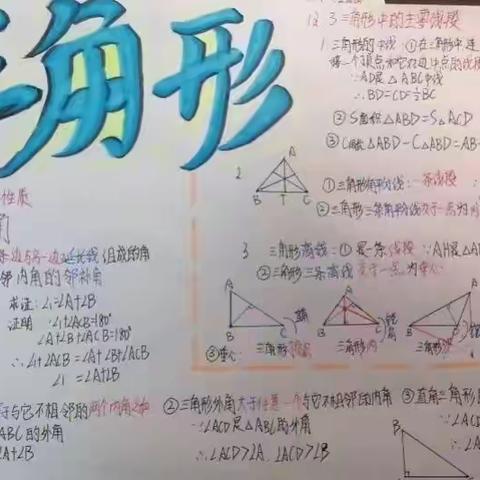 三角形
设 3 三角形中的主要线段
1. 三角形的中线：①在三角形中连
接一个顶点和它对边中点的线段
∵AD是△ABC中线
∴BD=CD=½BC
②S面积△ABD=S△ACD
③C周长△ABD-C△ABD=AB-
2
A
B T C
①三角形角平分线：一条线段
②三角形三条角平分线交于一点为内
3 三角形高线=①是一条线段 ∵AH是△AB
②三角形三条高线交于一点为垂心
③垂心：
A
B C
三角形顶点
A
B C
三角形内
A
B C
三角形
性质
角
条边与另一边延长线组成的角
邻内角的邻补角
求证：∠1=∠A+∠B
证明：∠1+∠ACB=180°
∠A+∠B+∠ACB=180°
∴∠1+∠ACB=∠A+∠B+∠ACB
∠1=∠A+∠B
于与它不相邻的两个内角之和
ABC的外角
∠A+∠B
②三角形外角大于任意一个与它不相邻的内角
∵∠ACD是△ABC的外角
∴∠ACD>∠A，∠ACD>∠B
③直角三角形
∵∠ACD
∴∠A
B